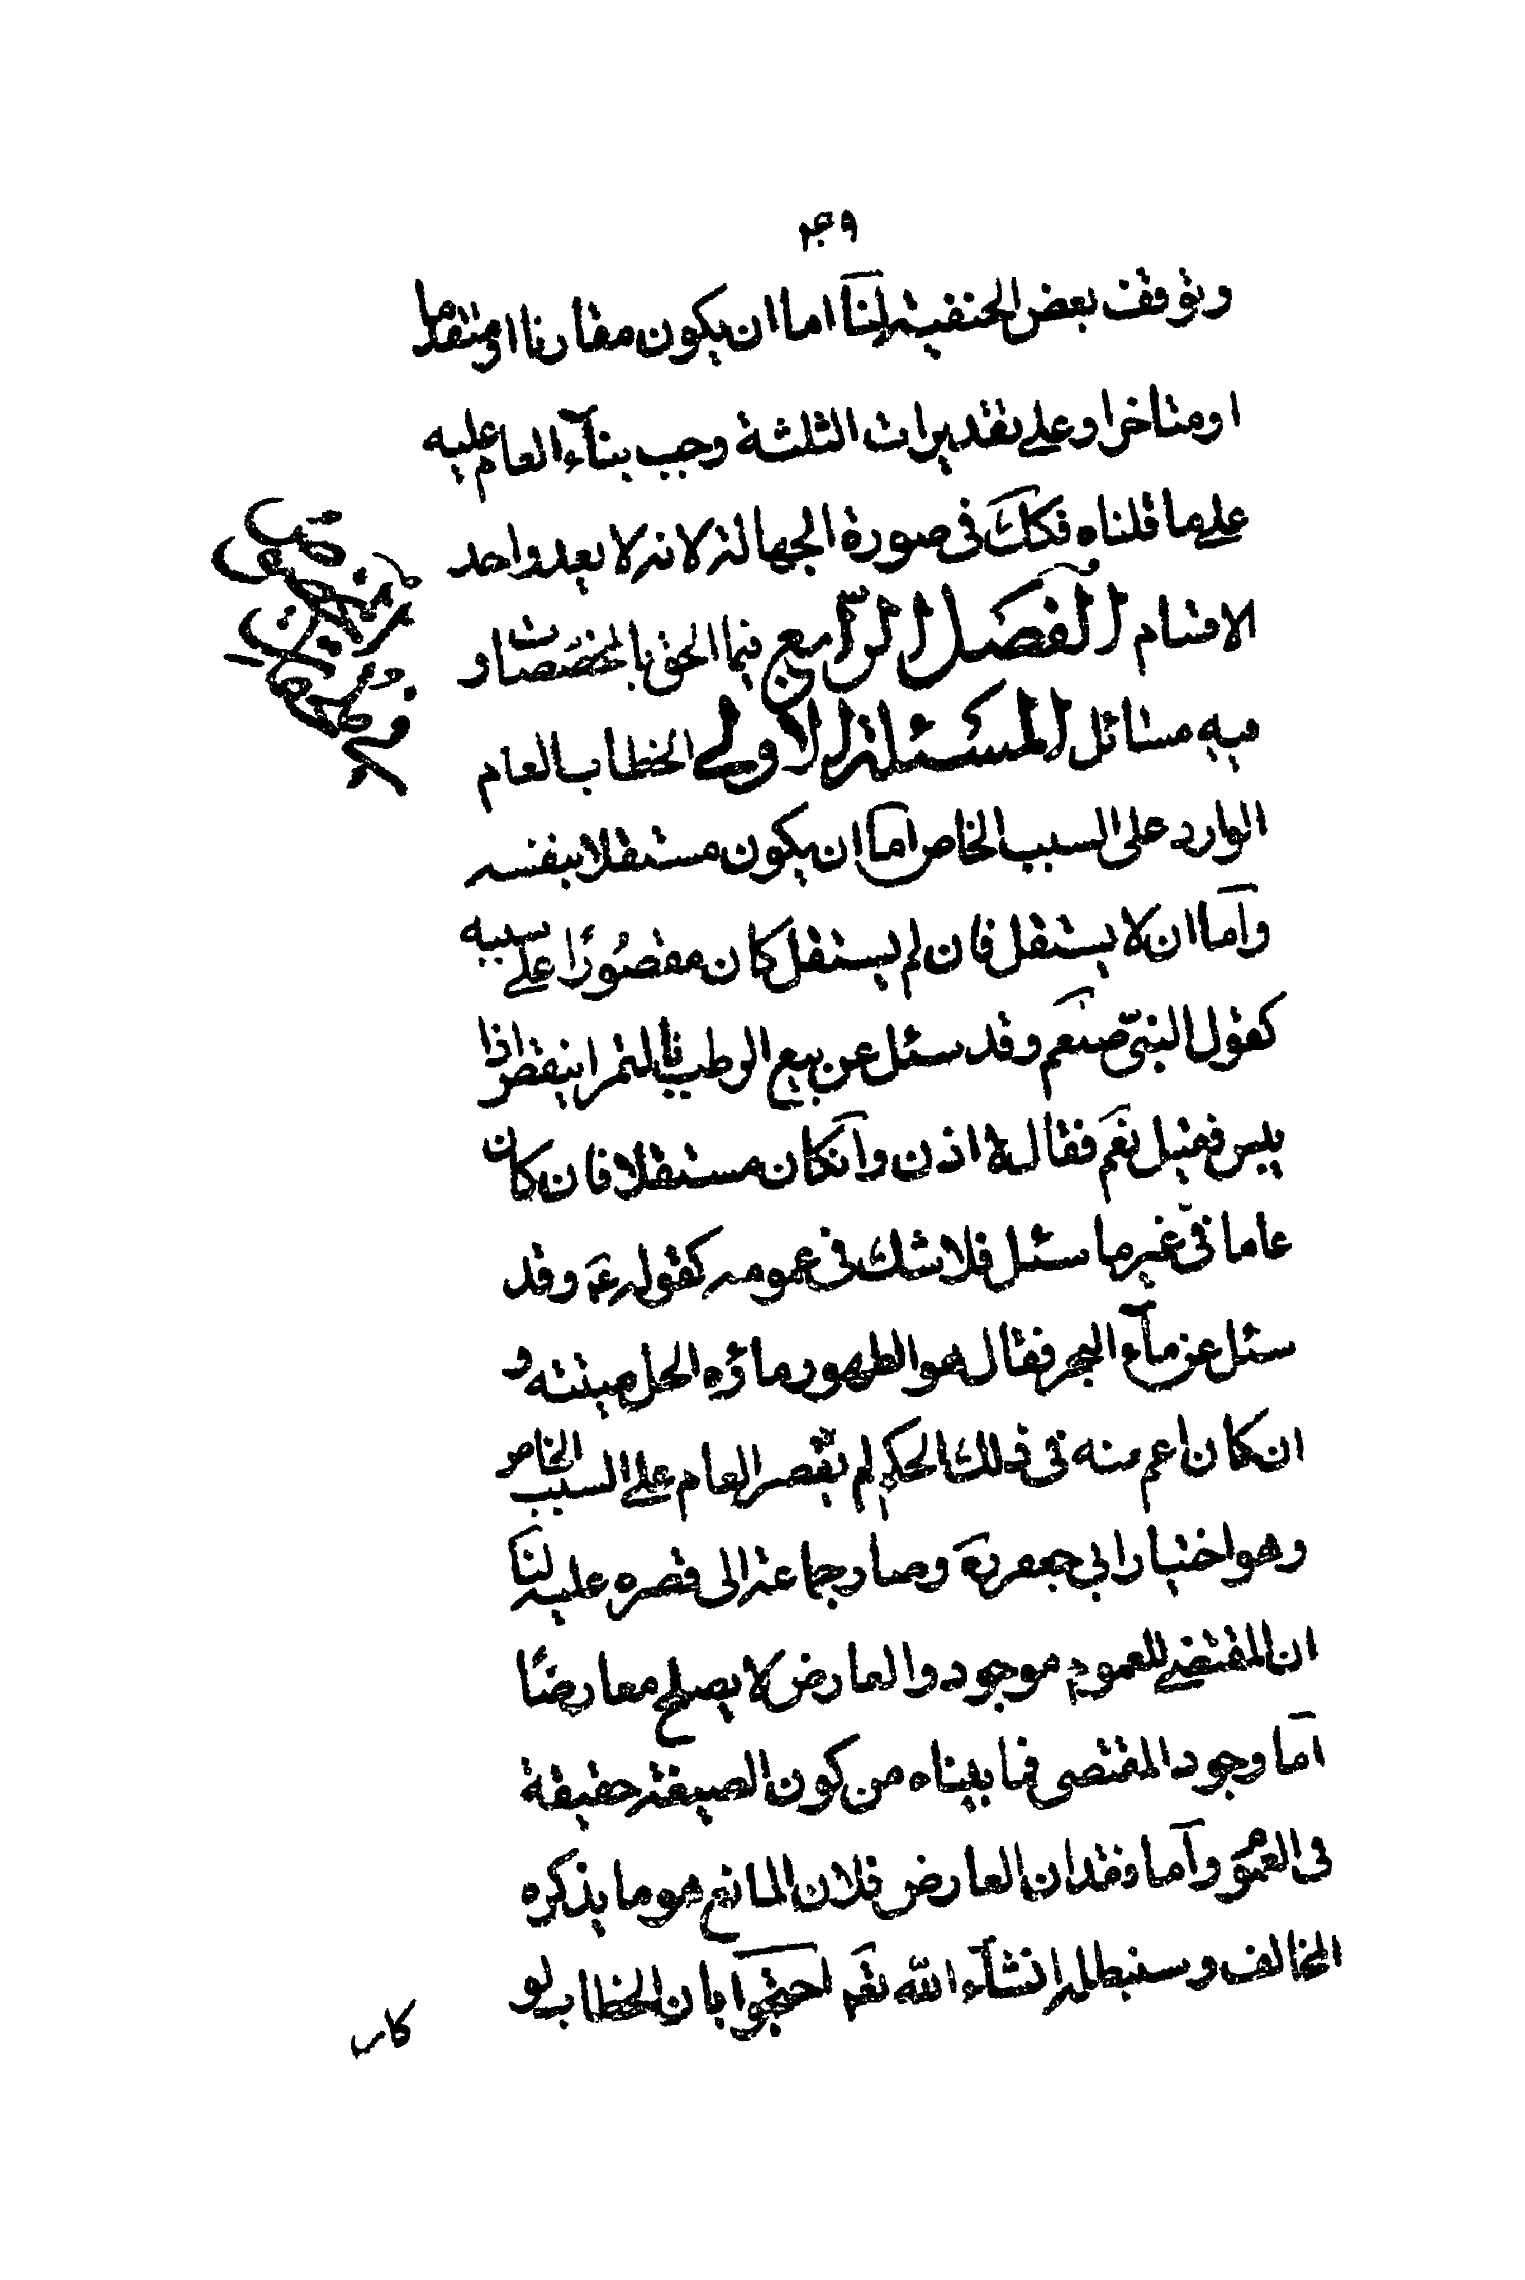 وتوقف بعض الحنفية لنا اما ان يكون مقارنا او متقدما
او متاخرا وعلى تقديرات الثلثة وجب بناء العام عليه
على ما قلناه فكك فى صورة الجهالة لانه لا يعد واحد
الاقسام الفصل الرابع فيما الحق بالمخصصات و
فيه مسائل المسئلة الاولى الخطاب العام
الوارد على السبب الخاص اما ان يكون مستقلا بنفسه
واما ان لا يستقل فان لم يستقل كان مقصورًا على سببه
كقول النبى صلعم وقد سئل عن بيع الرطب بالتمر اينقص اذا
يبس فقيل نعم فقال لا اذن وان كان مستقلا فان كان
عاما فى غير ما سئل فلا شك فى عمومه كقوله عم وقد
سئل عن ماء البحر فقال هو الطهور ماؤه الحل ميتته و
ان كان اعم منه فى ذلك الحكم لم يقصر العام على السبب الخاص
وهو اختيار ابى جعفر ره وصار جماعة الى قصره عليه لنا
ان المقتضى للعموم موجود والعارض لا يصلح معارضًا
اما وجود المقتضى فما بيناه من كون الصيغة حقيقة
فى العموم واما فقدان العارض فلان المانع هو ما يذكره
المخالف وسنبطله انشآء الله تعم احتجوا بان الخطاب لو
كان